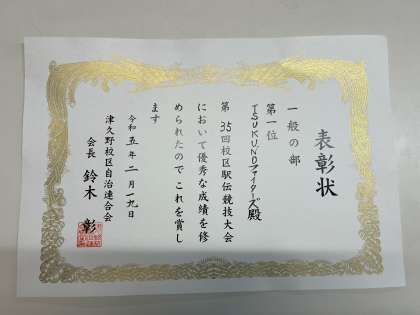 表彰状
一般の部
第一位
TSUKUNOファイターズ殿
第35回校区駅伝競技大会
において優秀な成績を修
められたのでこれを賞し
ます
令和五年二月一九日
津久野校区自治連合会
会長 鈴木 彰